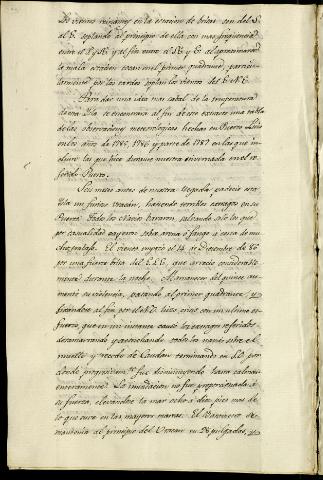 Los vientos reinantes en la estacion de brisas son del S.
al E. soplando al principio de ella con mas frequencia
entre el S y SE. y al fin entre el SE y E. al aproximarse
la mala estacion rolan al primer quadrante, particu-
larmente por las tardes soplan los vientos del E. NE.
Para dar una idea mas cabal de la temperatura
de esta Isla se encontrará al fin de este extracto una tabla
de las observaciones meteorologicas hechas en Puerto Luis
en los años de 1785, 1786 y parte de 1787 en las que in-
cluien las que hizo durante nuestra invernada en el re-
ferido Puerto.
Seis meses antes de nuestra llegada, padeció esta
Isla un furioso Uracán, haciendo terribles estragos en su
Puerto. Todos los Navios vararon, salvando solo los que
por casualidad cayeron sobre arena ó fango á costa de mu-
cho trabajo. El viento empezó el 14 de Diciembre de 86
por una fuerte brisa del E.S.E. que arreció considerable-
mente durante la noche. Al amanecer del quince au-
mentó su violencia, pasando al primer quadrante, y
fixandose al fin por el NO. hizo creer con un ultimo es-
fuerzo, que en un instante causó los estragos referidos
desamarrando y acochando todos los navios sobre el
muelle y recodo de Caudan terminando en SO. por
donde progresivam.te fue disminuyendo hasta calmar
enteramente. La inundacion no fue proporcionada á
su fuerza, elevandose la mar ocho á diez pies mas de
lo que suele en las mayores mareas. El Barometro se
mantenia al principio del Uracan en 28 pulgadas, y